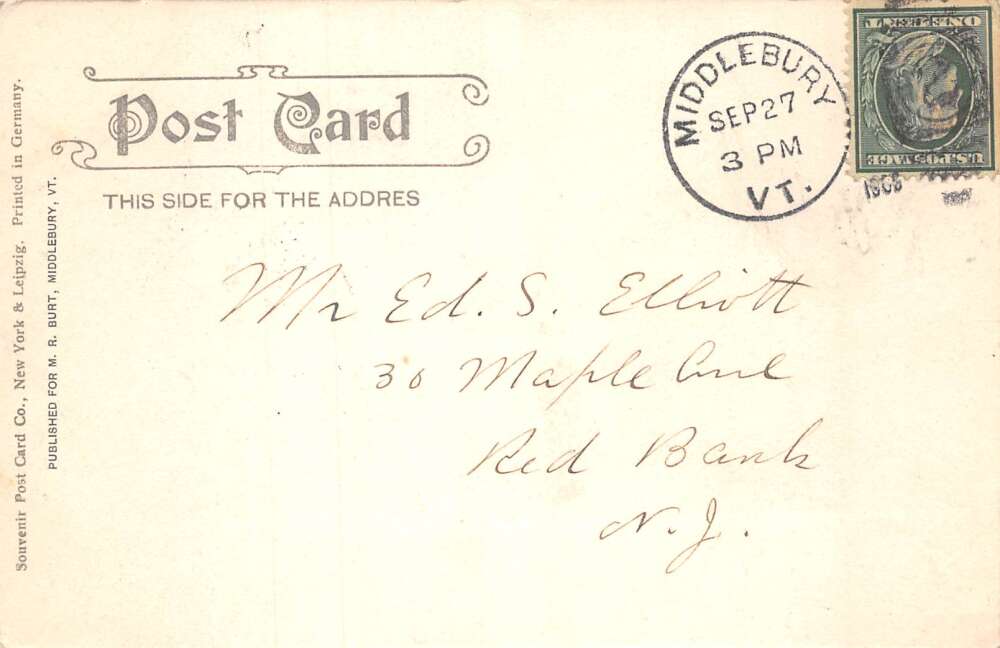 Post Card
THIS SIDE FOR THE ADDRES
MIDDLEBURY
SEP 27
3 PM
VT.
ONE CENT
U.S. POSTAGE
Mr Ed. S. Elliott
30 Maple Ave
Red Bank
N.J.
Souvenir Post Card Co., New York & Leipzig. Printed in Germany.
PUBLISHED FOR M. R. BURT, MIDDLEBURY, VT.